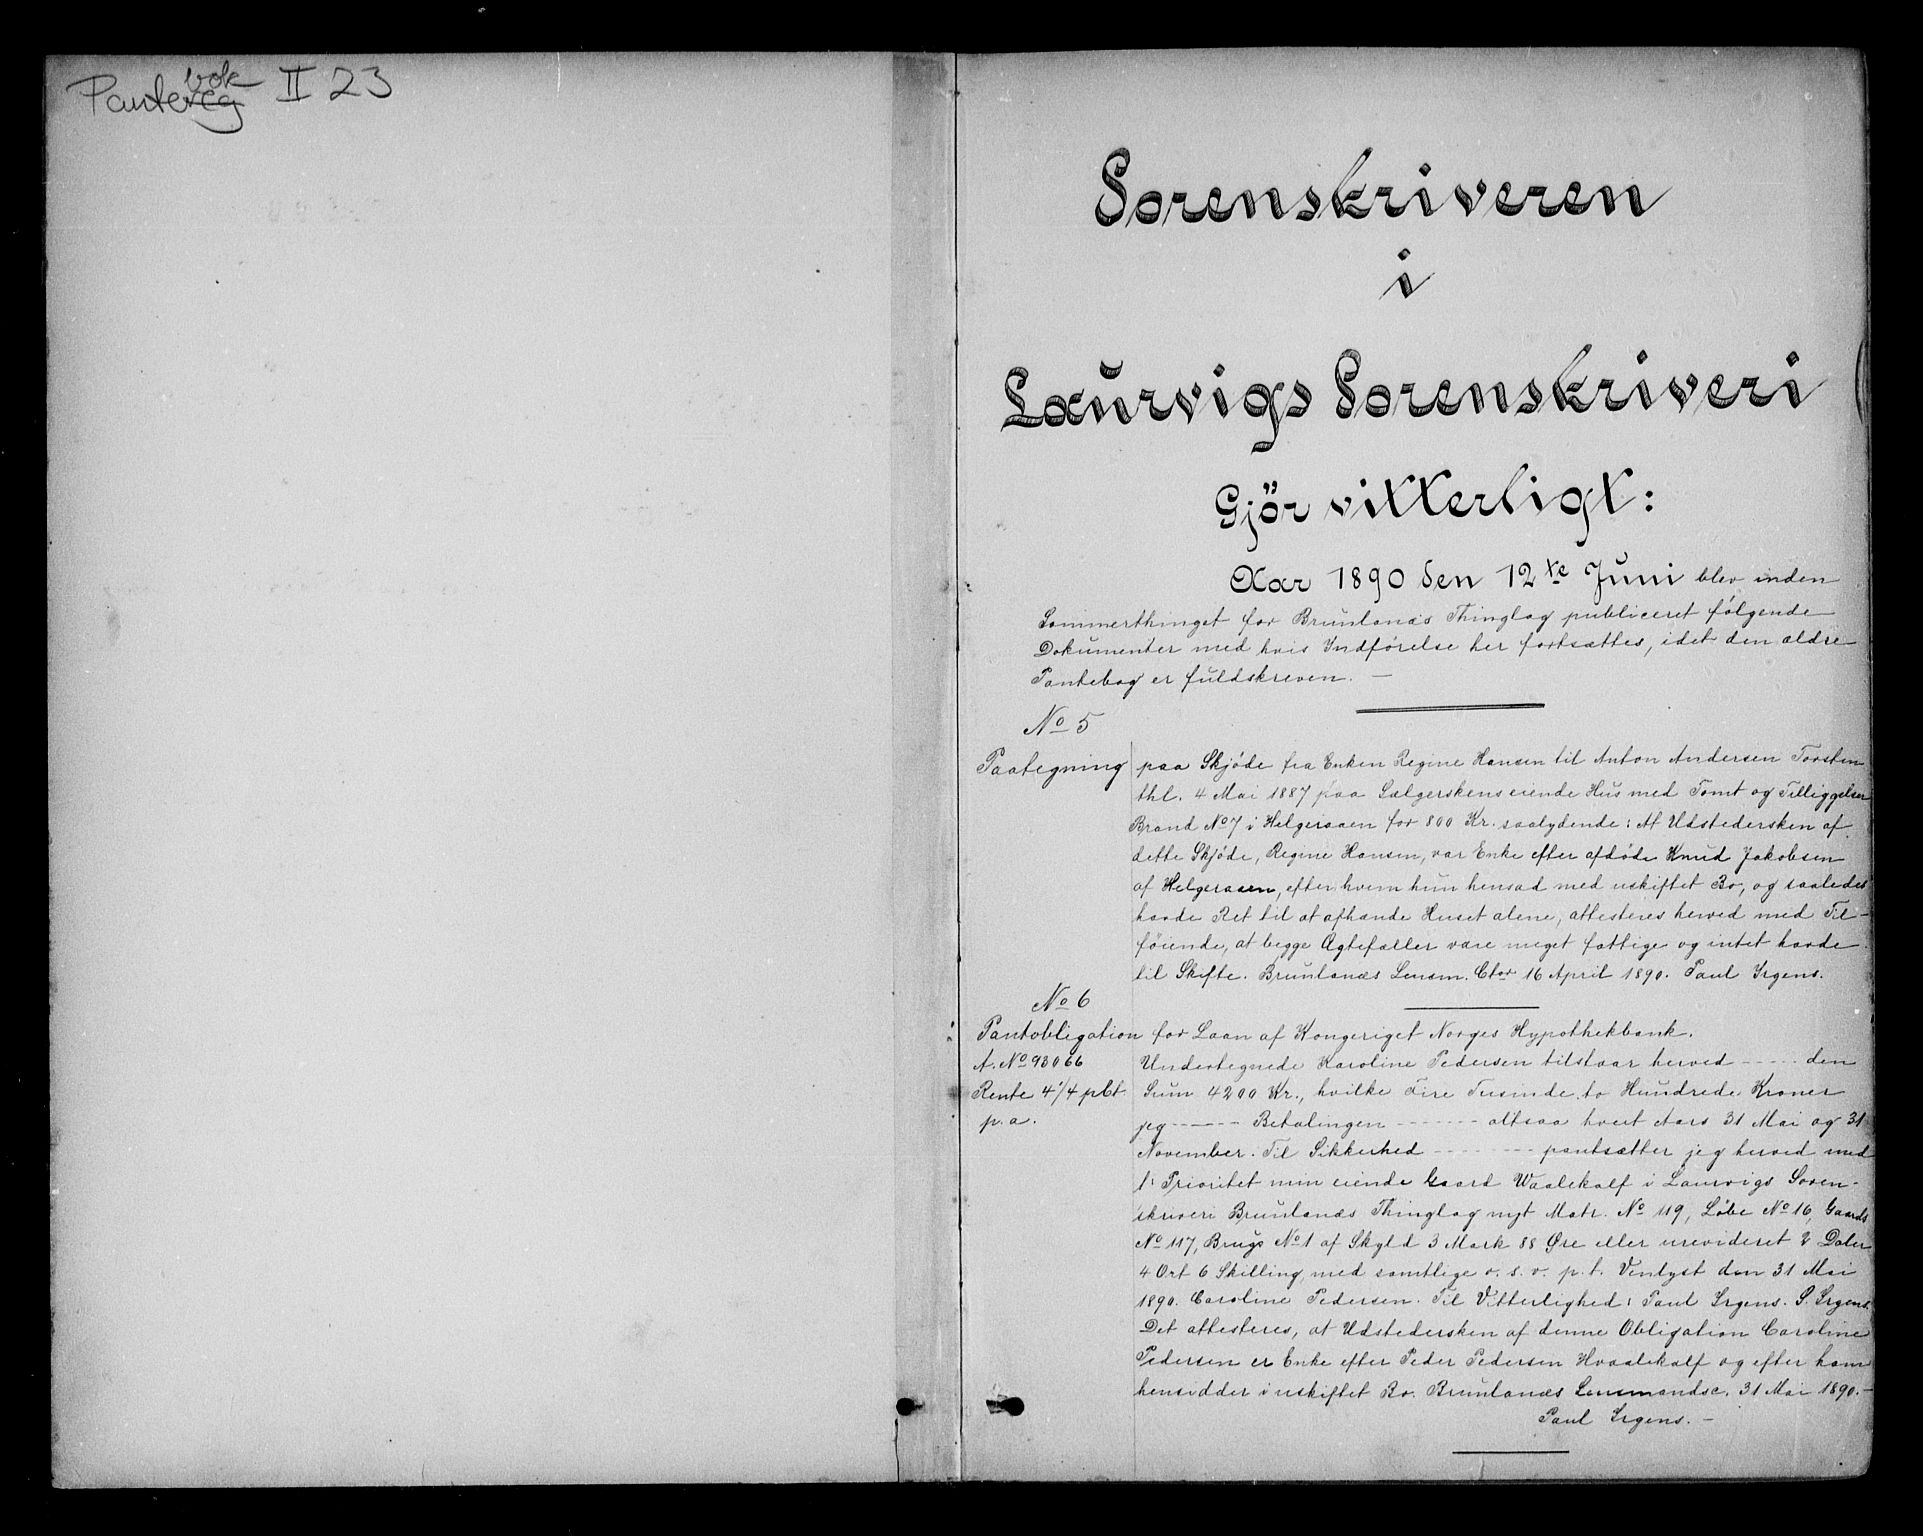 Pantereg bok II 23
Sorenskriveren
i
Laurvigs Sorenskriveri
Gjör vitterligt:
Aar 1890 den 12te Juni blev inden
Sommerthinget for Brunlanæs Thinglag publiceret følgende
Dokumenter med hvis Indførelse her fortsættes, idet den ældre
Pantebog er fuldskreven. —
No 5
Paategning paa Skjøde fra Enken Regine Hansen til Anton Andersen Torsten
thl. 4 Mai 1887 paa Sælgerskens eiende Hus med Tomt og Tilliggelser
Brand No 7 i Helgeraaen for 800 Kr. saalydende: At Udstedersken af
dette Skjøde, Regine Hansen, var Enke efter afdøde Knud Jakobsen
af Helgeraaen, efter hvem hun hensad med uskiftet Bo, og saaledes
havde Ret til at afhænde Huset alene, attesteres herved med Til-
føiende, at begge Ægtefæller vare meget fattige og intet havde
til Skifte. Brunlanæs Lensm. Ctor 16 April 1890. Paul Irgens.
No 6
Pantobligation for Laan af Kongeriget Norges Hypothekbank.
A. No 93066 Undertegnede Karoline Pedersen tilstaar herved ----- den
Rente 4 1/4 pCt. Sum 4200 Kr., hvilke Fire Tusinde to Hundrede Kroner
p. a. jeg ------ Betalingen ------- altsaa hvert Aars 31 Mai og 31
November. Til Sikkerhed -------- pantsætter jeg herved med
1' Prioritet min eiende Gaard Waalekalf i Laurvigs Soren-
skriveri Brunlanæs Thinglag nyt Matr. No 119, Løbe No 16, Gaards
No 117, Brugs No 1 af Skyld 3 Mark 88 Øre eller urevideret 2 Daler
4 Ort 6 Skilling, med samtlige o. s. v. p. t. Venlyst den 31 Mai
1890. Caroline Pedersen. Til Vitterlighed: Paul Irgens. S. Irgens.
Det attesteres, at Udstedersken af denne Obligation Caroline
Pedersen er Enke efter Peder Pedersen Hvaalekalf og efter ham
hensidder i uskiftet Bo. Brunlanæs Lensmandsc. 31 Mai 1890. —
Paul Irgens. —